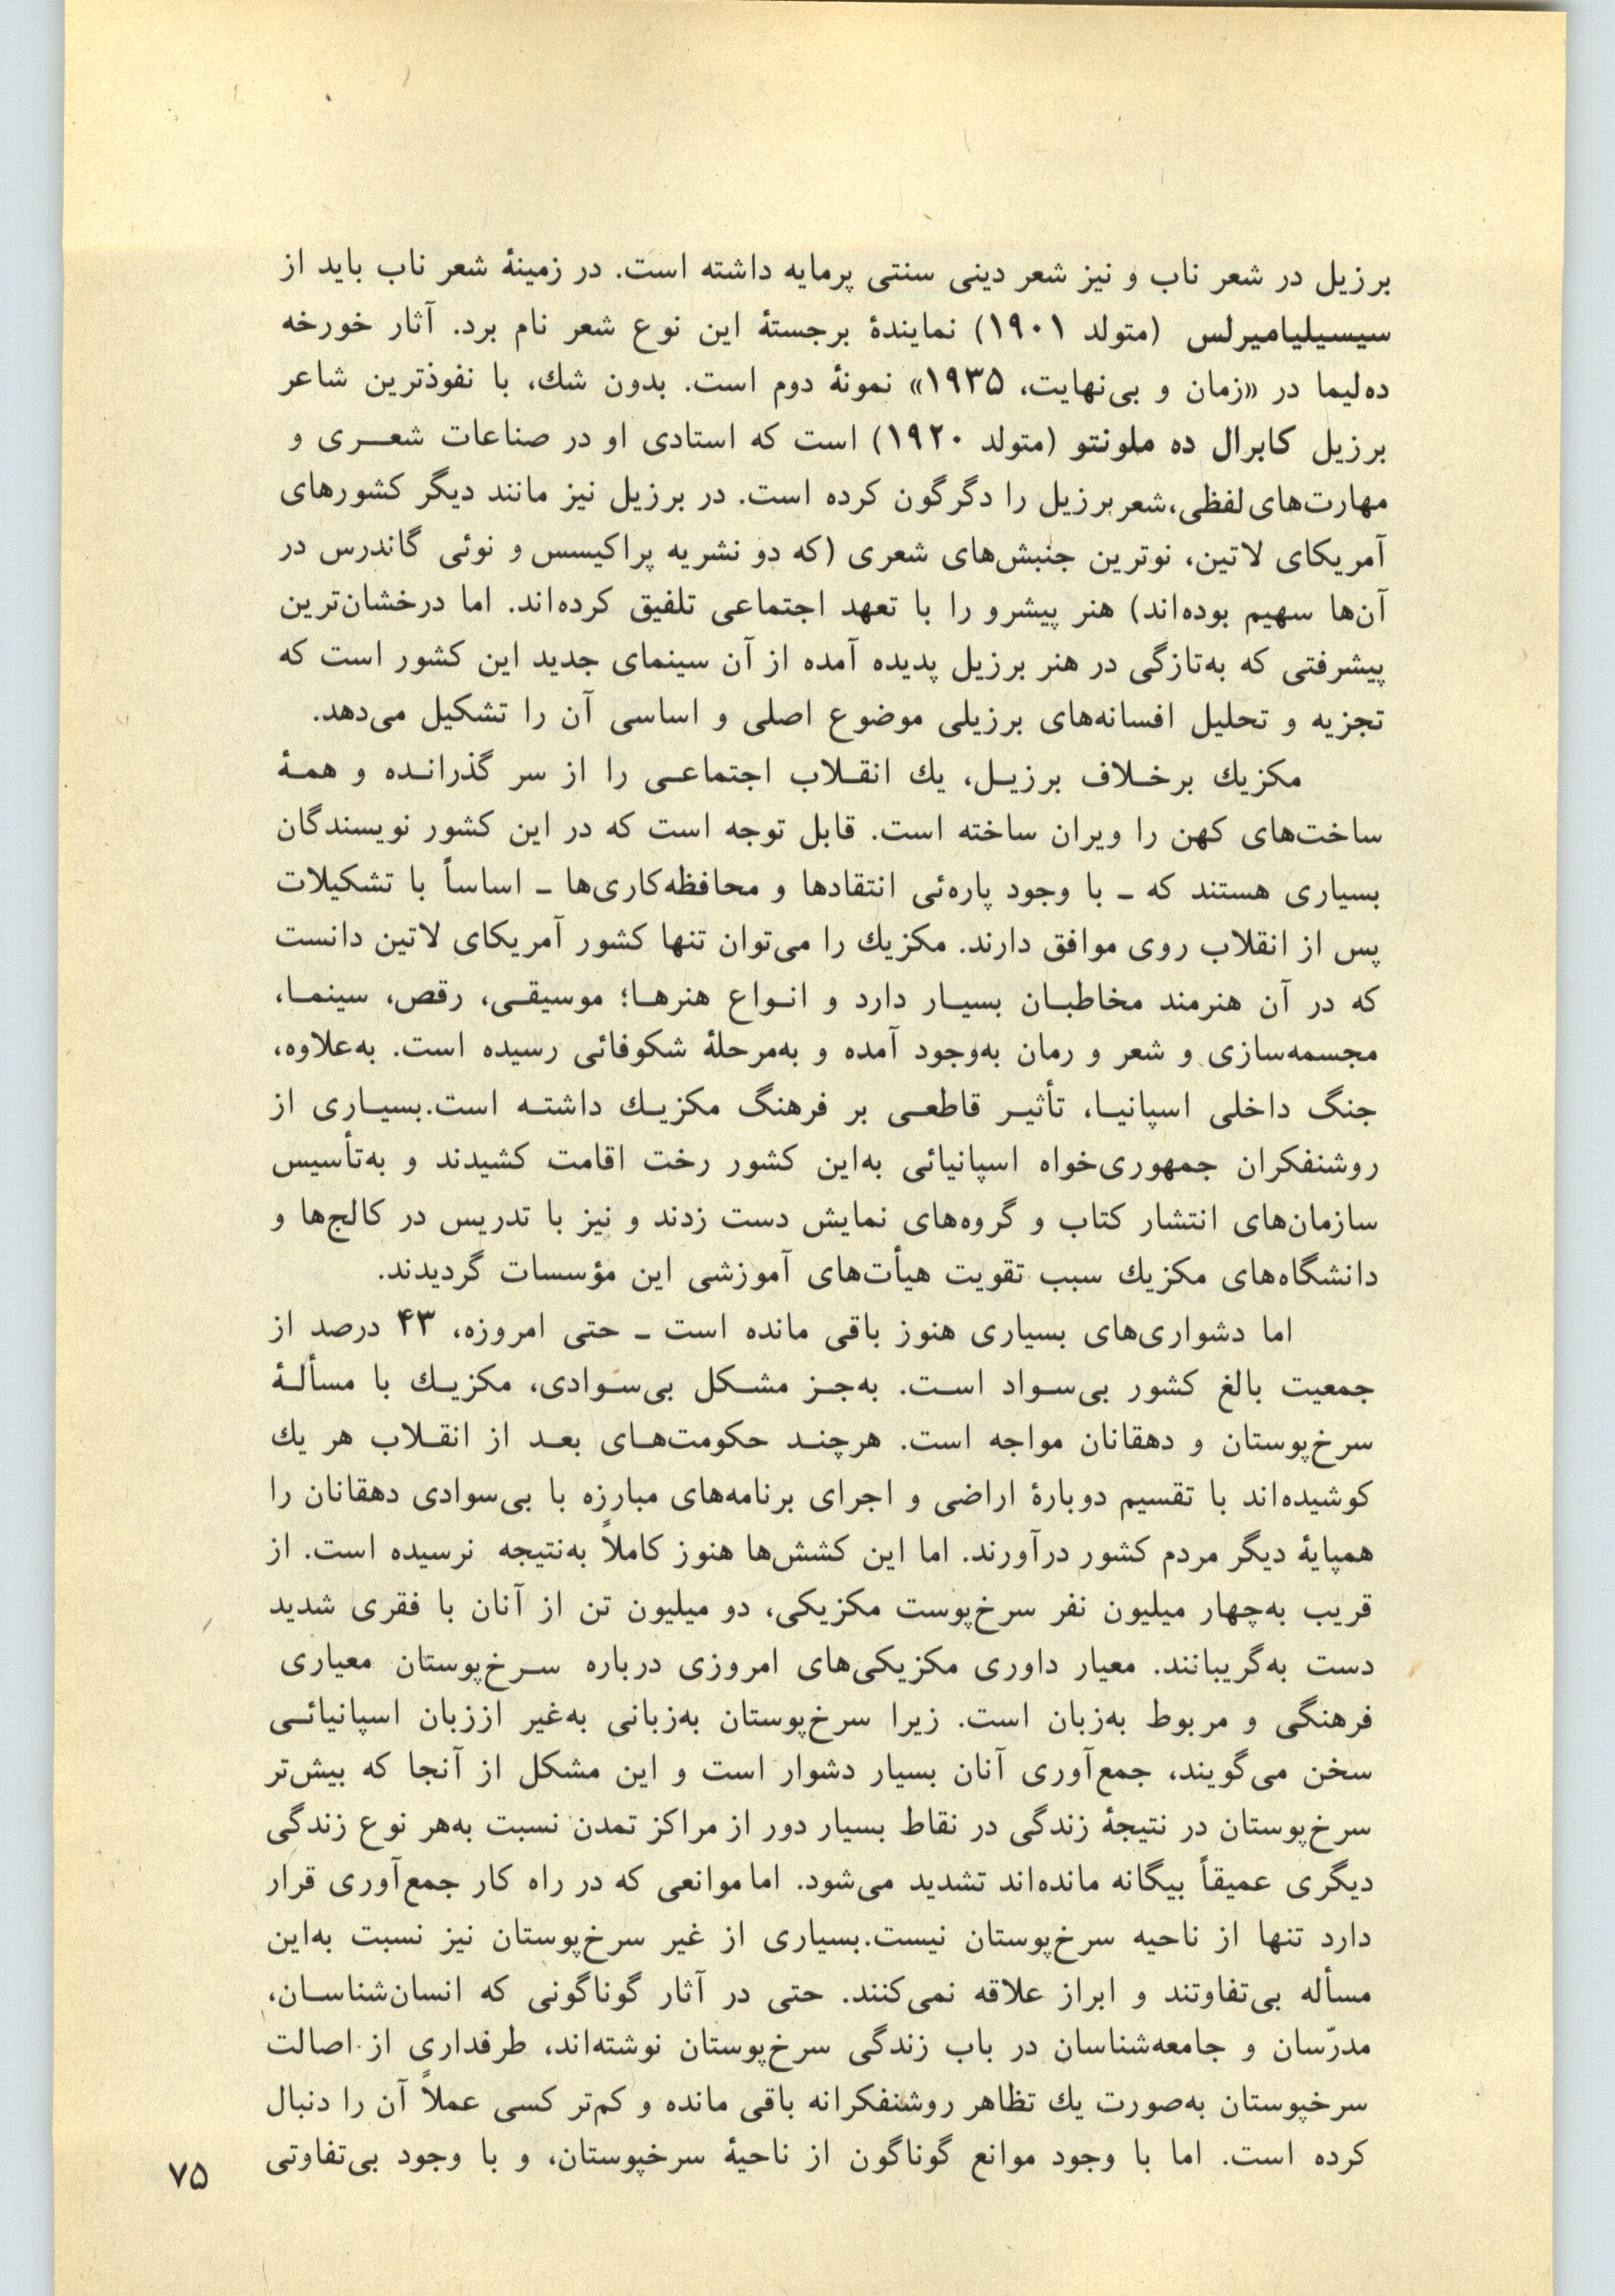 برزیل در شعر ناب و نیز شعر دینی سنتی پرمایه داشته است. در زمینهٔ شعر ناب باید از
سیسیلیامیرلس (متولد ۱۹۰۱) نمایندهٔ برجستهٔ این نوع شعر نام برد. آثار خورخه
ده‌لیما در «زمان و بی‌نهایت، ۱۹۳۵» نمونهٔ دوم است. بدون شك، با نفوذترین شاعر
برزیل کابرال ده ملونتو (متولد ۱۹۲۰) است که استادی او در صناعات شعـــری و
مهارت‌های لفظی،شعر برزیل را دگرگون کرده است. در برزیل نیز مانند دیگر کشورهای
آمریکای لاتین، نوترین جنبش‌های شعری (که دو نشریه پراکیسس و نوئی گاندرس در
آن‌ها سهیم بوده‌اند) هنر پیشرو را با تعهد اجتماعی تلفیق کرده‌اند. اما درخشان‌ترین
پیشرفتی که به‌تازگی در هنر برزیل پدیده آمده از آن سینمای جدید این کشور است که
تجزیه و تحلیل افسانه‌های برزیلی موضوع اصلی و اساسی آن را تشکیل می‌دهد.
مکزیك برخـلاف برزیـل، یك انقـلاب اجتماعـی را از سر گذرانـده و همـهٔ
ساخت‌های کهن را ویران ساخته است. قابل توجه است که در این کشور نویسندگان
بسیاری هستند که ـ با وجود پاره‌ئی انتقادها و محافظه‌کاری‌ها ـ اساساً با تشکیلات
پس از انقلاب روی موافق دارند. مکزیك را می‌توان تنها کشور آمریکای لاتین دانست
که در آن هنرمند مخاطبـان بسیـار دارد و انـواع هنرهـا؛ موسیقـی، رقص، سینمـا،
مجسمه‌سازی و شعر و رمان به‌وجود آمده و به‌مرحلهٔ شکوفائی رسیده است. به‌علاوه،
جنگ داخلی اسپانیـا، تأثیـر قاطعـی بر فرهنگ مکزیـك داشتـه است.بسیـاری از
روشنفکران جمهوری‌خواه اسپانیائی به‌این کشور رخت اقامت کشیدند و به‌تأسیس
سازمان‌های انتشار کتاب و گروه‌های نمایش دست زدند و نیز با تدریس در کالج‌ها و
دانشگاه‌های مکزیك سبب تقویت هیأت‌های آموزشی این مؤسسات گردیدند.
اما دشواری‌های بسیاری هنوز باقی مانده است ـ حتی امروزه، ۴۳ درصد از
جمعیت بالغ کشور بی‌سـواد اسـت. به‌جـز مشـکل بی‌سـوادی، مکزیـك با مسألـهٔ
سرخ‌پوستان و دهقانان مواجه است. هرچنـد حکومت‌هـای بعـد از انقـلاب هر یك
کوشیده‌اند با تقسیم دوبارهٔ اراضی و اجرای برنامه‌های مبارزه با بی‌سوادی دهقانان را
همپایهٔ دیگر مردم کشور درآورند. اما این کشش‌ها هنوز کاملاً به‌نتیجه نرسیده است. از
قریب به‌چهار میلیون نفر سرخ‌پوست مکزیکی، دو میلیون تن از آنان با فقری شدید
دست به‌گریبانند. معیار داوری مکزیکی‌های امروزی درباره سـرخ‌پوستان معیاری
فرهنگی و مربوط به‌زبان است. زیرا سرخ‌پوستان به‌زبانی به‌غیر اززبان اسپانیائـی
سخن می‌گویند، جمع‌آوری آنان بسیار دشوار است و این مشکل از آنجا که بیش‌تر
سرخ‌پوستان در نتیجهٔ زندگی در نقاط بسیار دور از مراکز تمدن نسبت به‌هر نوع زندگی
دیگری عمیقاً بیگانه مانده‌اند تشدید می‌شود. اما موانعی که در راه کار جمع‌آوری قرار
دارد تنها از ناحیه سرخ‌پوستان نیست.بسیاری از غیر سرخ‌پوستان نیز نسبت به‌این
مسأله بی‌تفاوتند و ابراز علاقه نمی‌کنند. حتی در آثار گوناگونی که انسان‌شناسـان،
مدرّسان و جامعه‌شناسان در باب زندگی سرخ‌پوستان نوشته‌اند، طرفداری از اصالت
سرخپوستان به‌صورت یك تظاهر روشنفکرانه باقی مانده و کم‌تر کسی عملاً آن را دنبال
کرده است. اما با وجود موانع گوناگون از ناحیهٔ سرخپوستان، و با وجود بی‌تفاوتی
۷۵